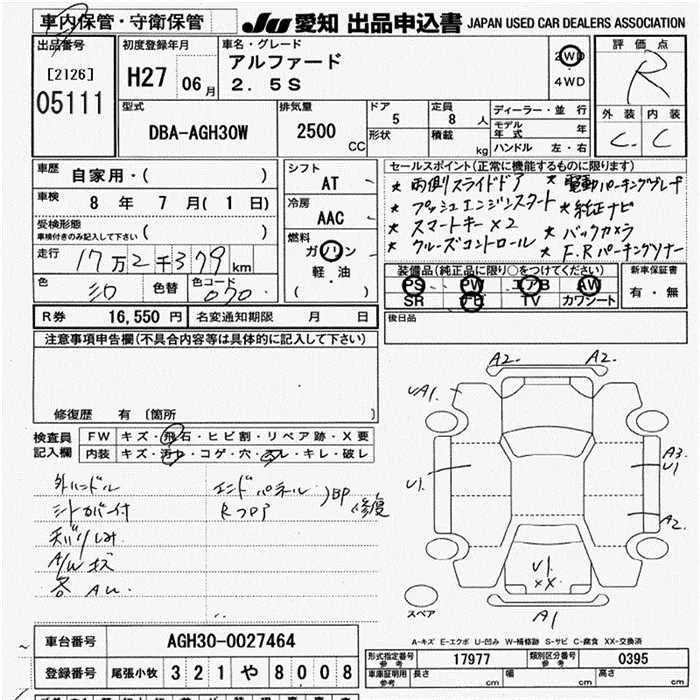 車内保管・守衛保管 JU 愛知 出品申込書 JAPAN USED CAR DEALERS ASSOCIATION
出品番号
[2126]
05111
初度登録年月
H27 06月
車名・グレード
アルファード
2.5S
2WD
4WD
評価点
R
外装 内装
C C
型式
DBA-AGH30W
排気量
2500 CC
ドア
5
形状
定員
8 人
積載
kg
ディーラー・並行
モデル年式 年
ハンドル 左・右
車歴
自家用・( )
車検
8 年 7 月(1 日)
受検形態
車検付きのみ記入して下さい ( )
走行
17万2千379km
色
シロ
色替
色コード
070
シフト
AT
冷房
AAC
燃料
ガソリン
軽・油
( )
セールスポイント(正常に機能するものに限ります)
★ 両側スライドドア ★ 電動パーキングブレーキ
★ プッシュエンジンスタート ★ 純正ナビ
★ スマートキー×2 ★ バックカメラ
★ クルーズコントロール ★ F.Rパーキングソナー
装備品(純正品に限り○をつけてください)
PS PW エアB AW
SR ナビ TV カワシート
新車保証書
有・無
R券 16,550円 名変通知期限 月 日
後日品
注意事項申告欄(不具合内容等は具体的に記入して下さい)
修復歴 有 〔箇所
検査員
記入欄
FW キズ・飛石・ヒビ割・リペア跡・X要
内装 キズ・汚れ・コゲ・穴・スレ・キレ・破レ
外ハンドル
シートカバー付
天バリしみ
A/Wキズ
各AU
エンドパネル
Rフロア
)BP 修復
A2. A2.
UA1.
U1.
A3
U1
A2.
U1
XX
A1
スペア
A-キズ E-エクボ U-凹み W-補修跡 S-サビ C-腐食 XX-交換済
車台番号 AGH30-0027464
登録番号 尾張小牧 321 や 8008
形式指定番号
参考
17977
類別区分番号
参考
0395
車庫証明用
参考
長さ cm 幅 cm 高さ cm